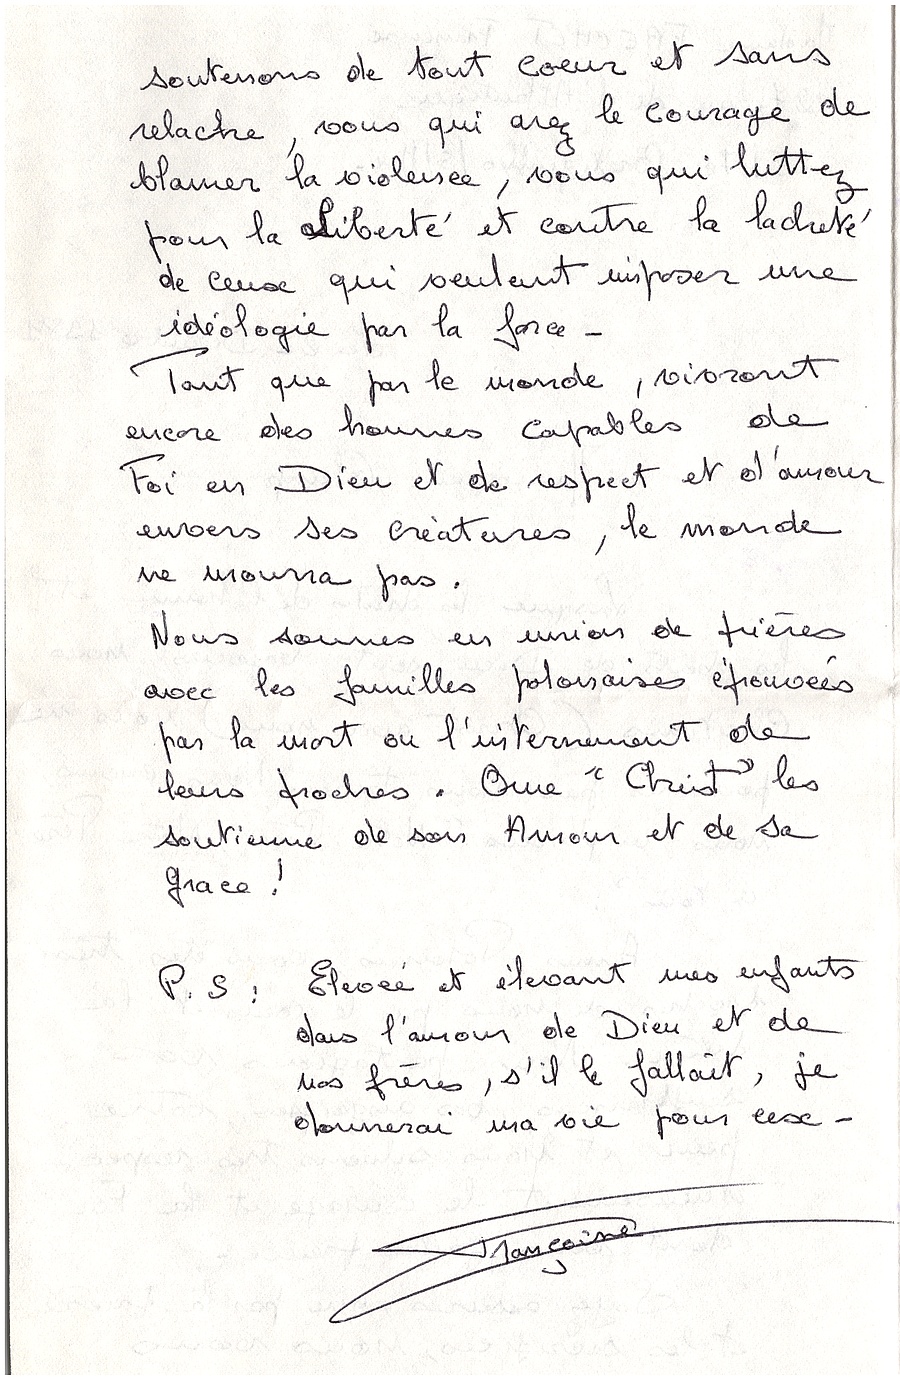 soutenons de tout coeur et sans
relache, vous qui avez le courage de
blamer la violence, vous qui luttez
pour la Liberté et contre la lacheté
de ceux qui veulent imposer une
idéologie par la force -
Tant que par le monde, vivront
encore des hommes capables de
Foi en Dieu et de respect et d'amour
envers ses créatures, le monde
ne mourra pas.
Nous sommes en union de prières
avec les familles polonaises éprouvées
par la mort ou l'internement de
leurs proches. Que "Christ" les
soutienne de son Amour et de sa
grace !
P.S : Elevée et élevant mes enfants
dans l'amour de Dieu et de
nos frères, s'il le fallait, je
donnerai ma vie pour eux -
Françoise